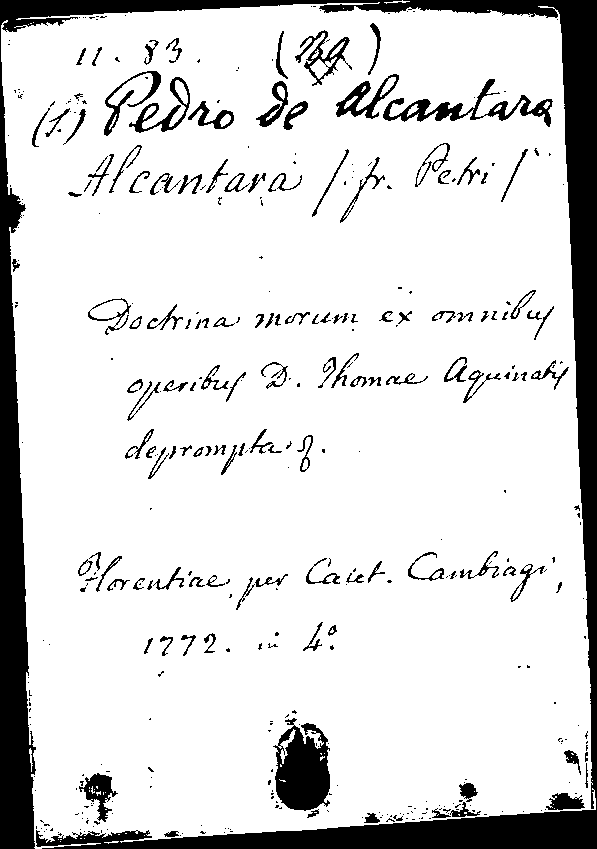 11. 83. (239)
(S.) Pedro de Alcantara
Alcantara /. fr. Petri /
Doctrina morum ex omnibus
operibus D. Thomae Aquinatis
deprompta
Florentiae, per Caiet. Cambiagi,
1772. in 4º.